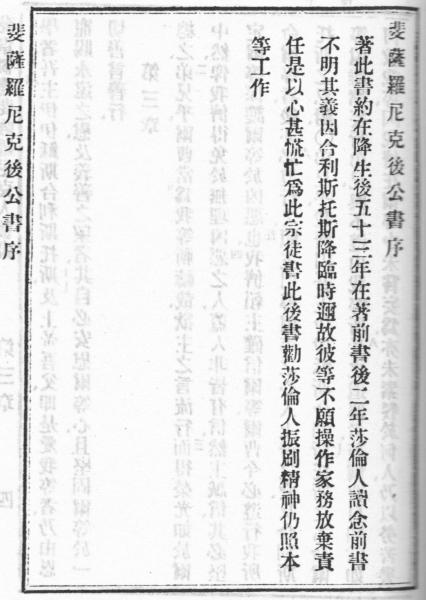 斐薩羅尼克後公書序
著此書約在降生後五十三年在著前書後二年莎倫人讀念前書
不明其義因合利斯托斯降臨時邇故彼等不願操作家務放棄責
任是以心甚慌忙爲此宗徒書此後書勸莎倫人振刷精神仍照本
等工作
斐薩羅尼克後公書序